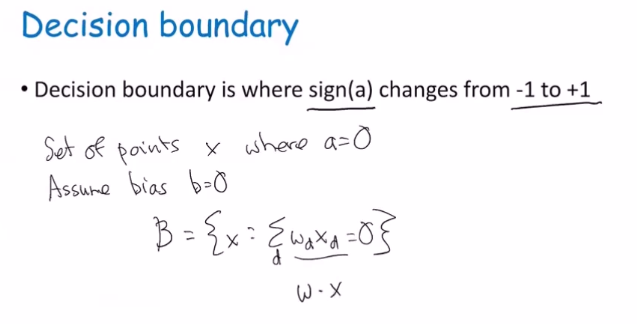 Decision boundary
• Decision boundary is where sign(a) changes from -1 to +1
Set of points x where a=0
Assume bias b=0
B = {x : Σ_d w_d x_d = 0}
w · x